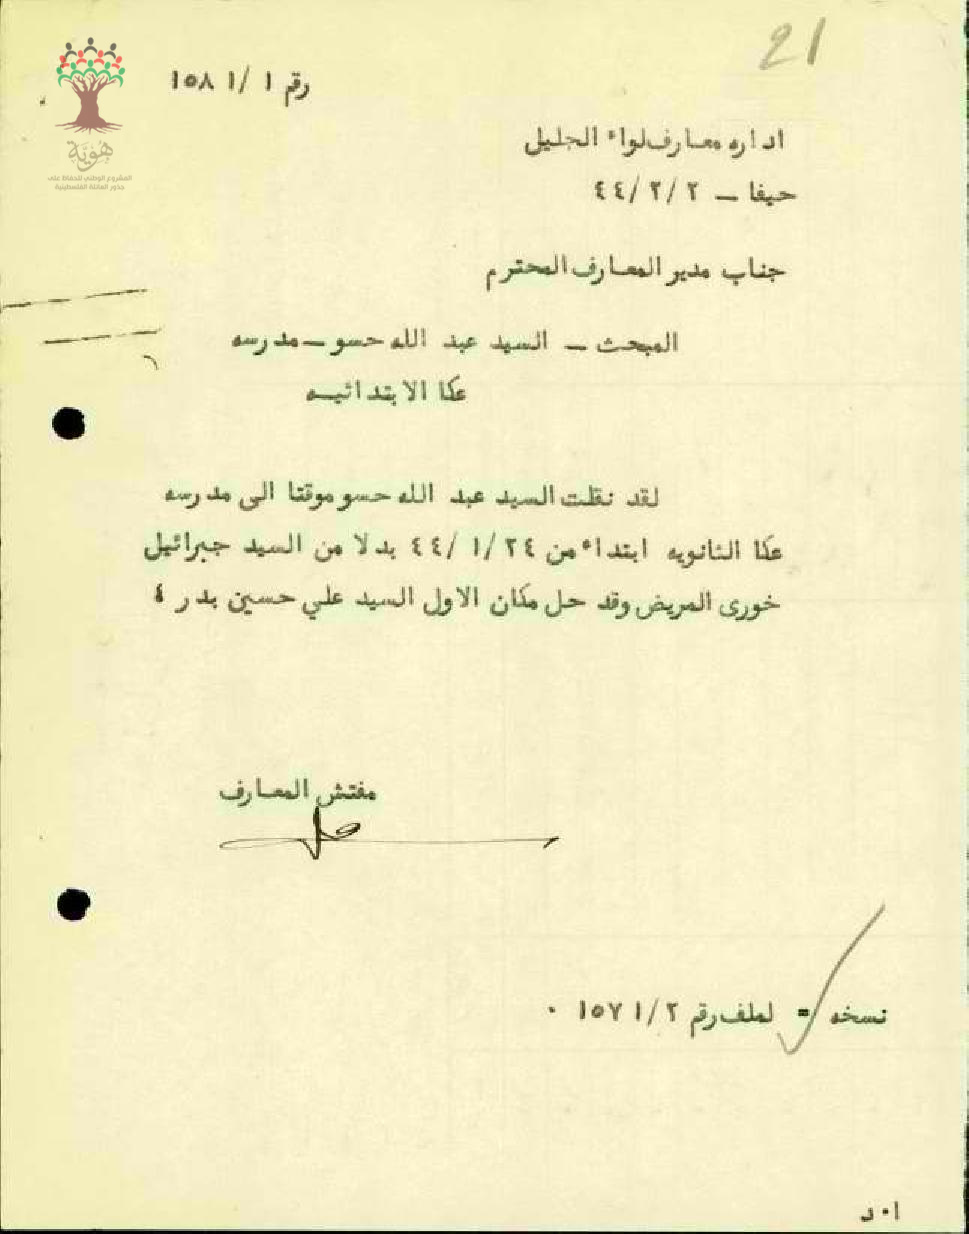 21
هوية
المشروع الوطني للحفاظ على
جذور العائلة الفلسطينية
رقم ١ /١ ١٥٨
اداره معارف لواء الجليل
حيفا ــ ٢/٢/ ٤٤
جناب مدير المعارف المحترم
المبحث ــ السيد عبد الله حسو ــ مدرسه
عكا الابتدائيه
لقد نقلت السيد عبد الله حسو موقتا الى مدرسه
عكا الثانويه ابتداء من ٢٤ /١ /٤٤ بدلا من السيد جبرائيل
خورى المريض وقد حل مكان الاول السيد علي حسين بدر ؛
مفتش المعارف
نسخه = لملف رقم ٢ /١ ١٥٧ ٠
ا٠د